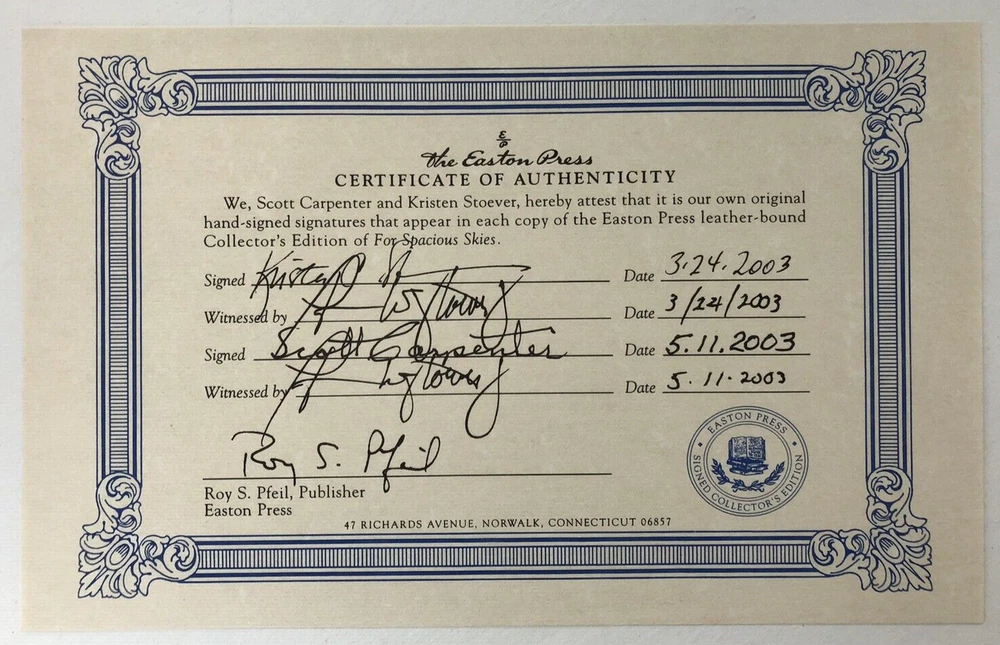 E
P
The Easton Press
CERTIFICATE OF AUTHENTICITY
We, Scott Carpenter and Kristen Stoever, hereby attest that it is our own original
hand-signed signatures that appear in each copy of the Easton Press leather-bound
Collector's Edition of For Spacious Skies.
Signed Date 3·24·2003
Witnessed by Date 3/24/2003
Signed Scott Carpenter Date 5.11.2003
Witnessed by Date 5·11·2003
Roy S. Pfeil
Roy S. Pfeil, Publisher
Easton Press
EASTON PRESS
SIGNED COLLECTOR'S EDITION
47 RICHARDS AVENUE, NORWALK, CONNECTICUT 06857